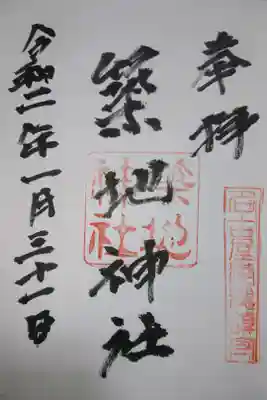 奉拝
築地神社
令和二年一月三十一日
築地
神社